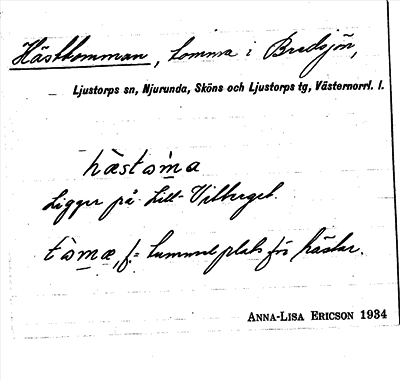 Hästtomman, tomma i Bredsjön,
Ljustorps sn, Njurunda, Sköns och Ljustorps tg, Västernorrl. l.
hästòma
Ligger på Lill-Vitberget.
tòmæ, f. = tummelplats för hästar.
ANNA-LISA ERICSON 1934